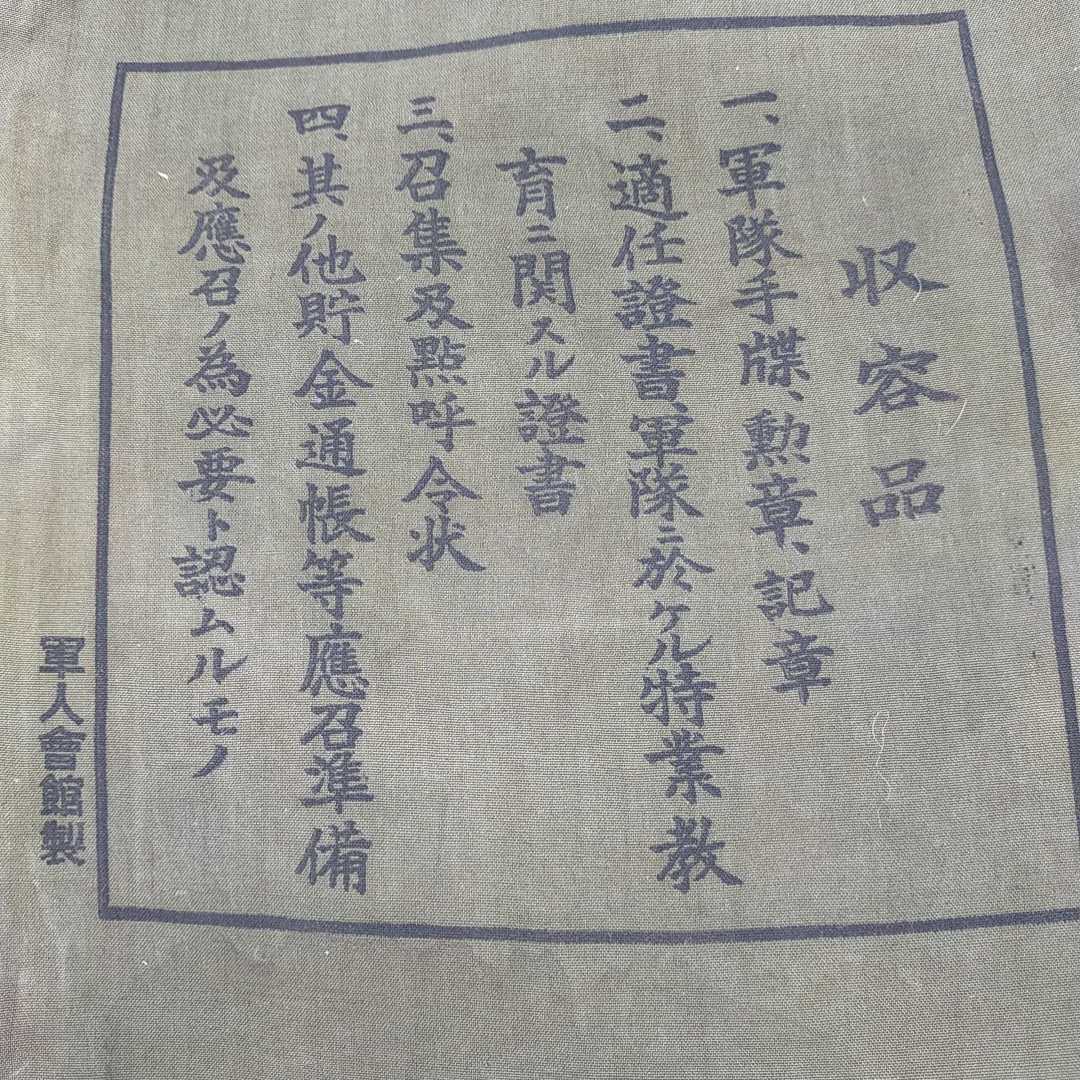 収容品
一、軍隊手牒、勲章、記章
二、適任證書、軍隊ニ於ケル特業教
育ニ関スル證書
三、召集及點呼令状
四、其ノ他貯金通帳等應召準備
及應召ノ為必要ト認ムルモノ
軍人會館製